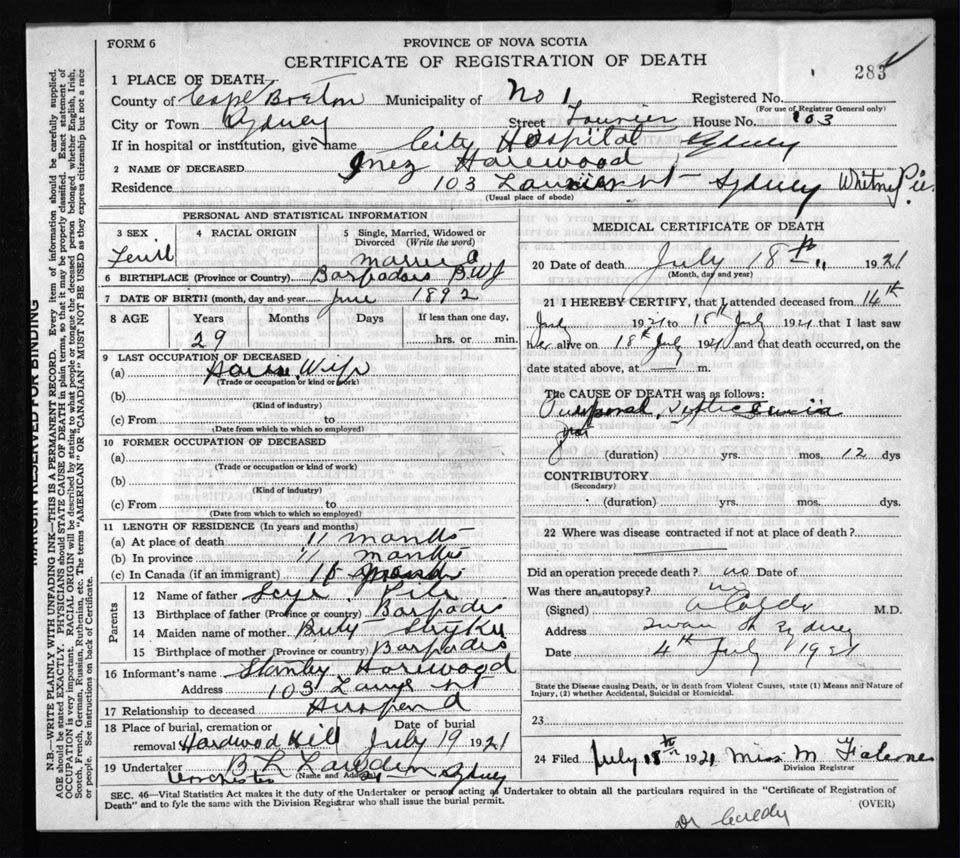 FORM 6
PROVINCE OF NOVA SCOTIA
CERTIFICATE OF REGISTRATION OF DEATH
283
1 PLACE OF DEATH
County of Cape Breton Municipality of No 1 Registered No.
(For use of Registrar General only)
City or Town Sydney Street House No. 103
If in hospital or institution, give name City Hospital Sydney
2 NAME OF DECEASED Inez Harewood
Residence 103 Sydney Whitney Pier.
(Usual place of abode)
PERSONAL AND STATISTICAL INFORMATION
3 SEX
4 RACIAL ORIGIN
5 Single, Married, Widowed or Divorced (Write the word)
married
6 BIRTHPLACE (Province or Country) Barpados B.W.I
7 DATE OF BIRTH (month, day and year) 1892
8 AGE Years Months Days If less than one day,
29 hrs. or min.
9 LAST OCCUPATION OF DECEASED
(a) House Wife
(Trade or occupation or kind of work)
(b)
(Kind of industry)
(c) From to
(Date from which to which so employed)
10 FORMER OCCUPATION OF DECEASED
(a)
(Trade or occupation or kind of work)
(b)
(Kind of industry)
(c) From to
(Date from which to which so employed)
11 LENGTH OF RESIDENCE (In years and months)
(a) At place of death 11 months
(b) In province 11 months
(c) In Canada (if an immigrant)
Parents
12 Name of father
13 Birthplace of father (Province or country) Barpados
14 Maiden name of mother
15 Birthplace of mother (Province or Country) Barpados
16 Informant's name Stanley Harewood
Address 103
17 Relationship to deceased
18 Place of burial, cremation or removal Hardwood Hill
Date of burial July 19 1921
19 Undertaker Sydney
(Name and Address)
MEDICAL CERTIFICATE OF DEATH
20 Date of death July 18th 1921
(Month, day and year)
21 I HEREBY CERTIFY, that I attended deceased from 14th
July 1921 to 18th July 1921 that I last saw
her alive on 18th July 1921 and that death occurred, on the
date stated above, at m.
The CAUSE OF DEATH was as follows:
Puerperal Septicaemia
(duration) yrs. mos. 12 dys
CONTRIBUTORY
(Secondary)
(duration) yrs. mos. dys.
22 Where was disease contracted if not at place of death?
Did an operation precede death? no Date of
Was there an autopsy? no
(Signed) M.D.
Address Sydney
Date 4th July 1921
State the Disease causing Death, or in death from Violent Causes, state (1) Means and Nature of Injury, (2) whether Accidental, Suicidal or Homicidal.
23
24 Filed July 18th 1921 Miss M
Division Registrar
SEC. 46—Vital Statistics Act makes it the duty of the Undertaker or person acting as Undertaker to obtain all the particulars required in the "Certificate of Registration of
Death" and to fyle the same with the Division Registrar who shall issue the burial permit.
(OVER)
MARGIN RESERVED FOR BINDING
N.B.—WRITE PLAINLY WITH UNFADING INK—THIS IS A PERMANENT RECORD. Every item of information should be carefully supplied.
AGE should be stated EXACTLY. PHYSICIANS should STATE CAUSE OF DEATH in plain terms, so that it may be properly classified. Exact statement of
OCCUPATION is very important. RACIAL ORIGIN will be described by stating to what people or tongue the deceased person belonged whether English, Irish,
Scotch, French, German, Russian, Ruthenian, etc. The terms "AMERICAN" or "CANADIAN" MUST NOT BE USED as they express citizenship but not a race
or people. See instructions on back of Certificate.